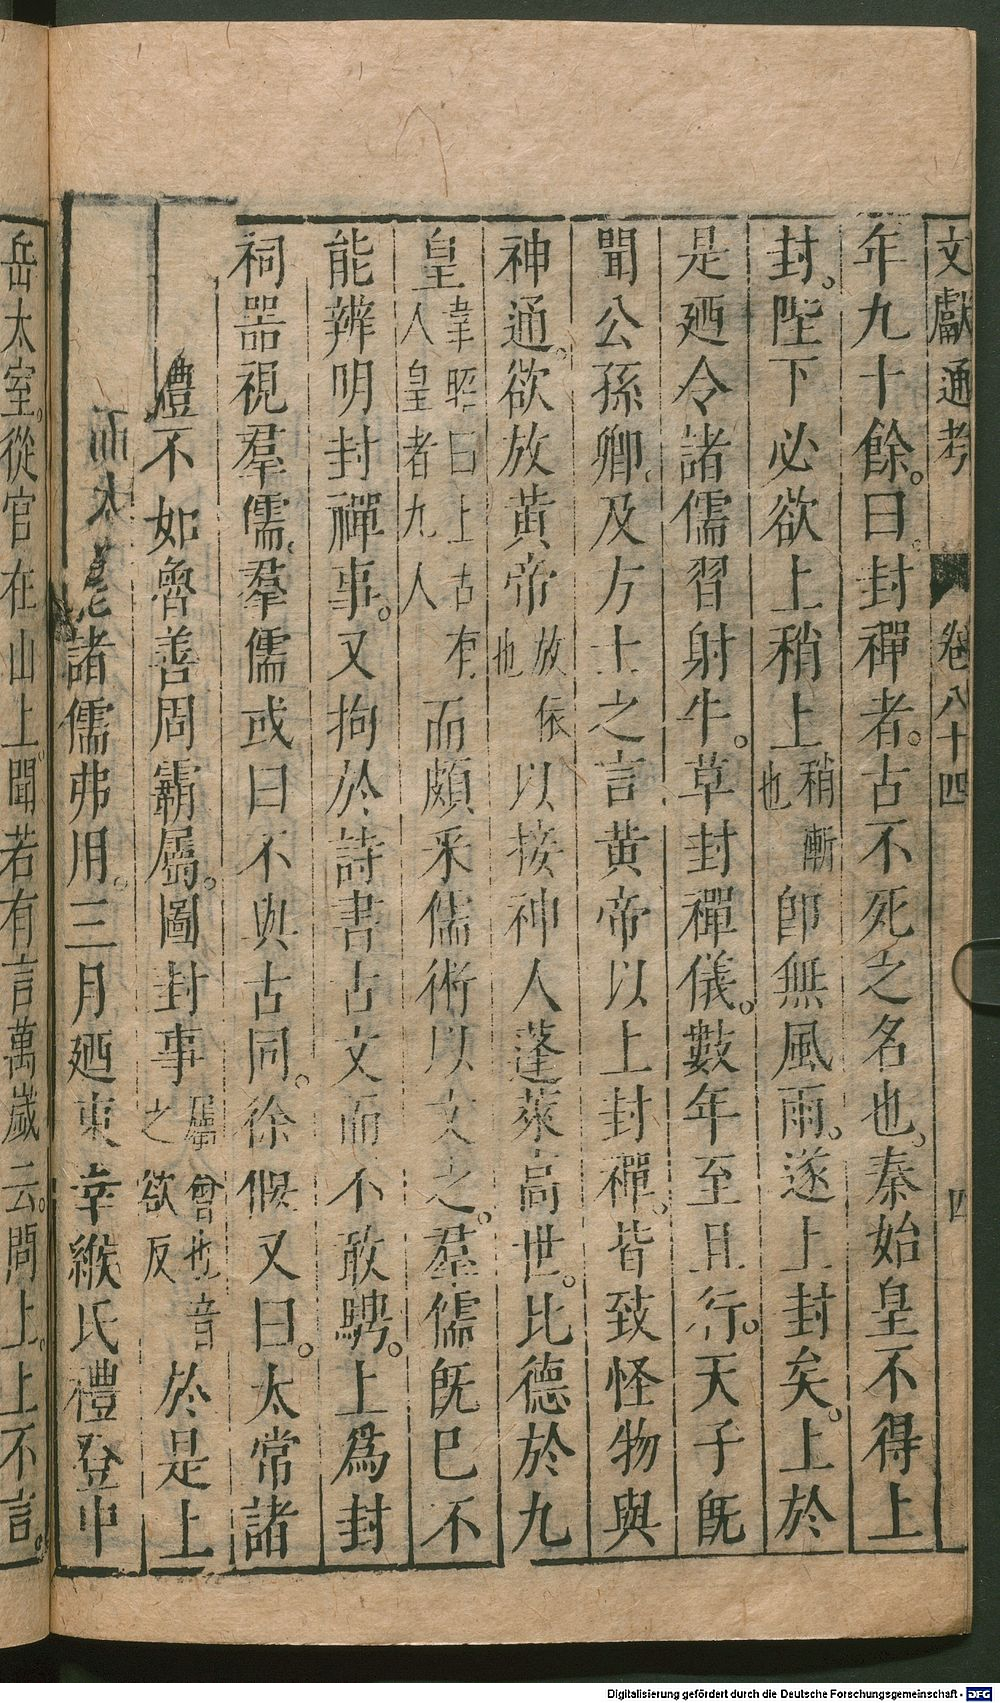 文獻通考 卷八十四 四
年九十餘。曰。封禪者。古不死之名也。秦始皇不得上
封。陛下必欲上稍上稍漸也即無風雨。遂上封矣。上於
是廼令諸儒習射牛。草封禪儀。數年至且行。天子旣
聞公孫卿及方士之言黃帝以上封禪。皆致怪物與
神通。欲放黃帝放依也以接神人蓬萊高世。比德於九
皇韋昭曰上古有人皇者九人而頗采儒術以文之。羣儒旣巳不
能辨明封禪事。又拘於詩書古文而不敢騁。上爲封
祠器視羣儒。羣儒或曰不與古同。徐偃又曰。太常諸
禮不如魯善周霸屬。圖封事屬會也音之欲反於是上
諸儒弗用。三月廼東幸緱氏禮登中
岳太室。從官在山上。聞若有言萬歲云。問上。上不言。
Digitalisierung gefördert durch die Deutsche Forschungsgemeinschaft - DFG